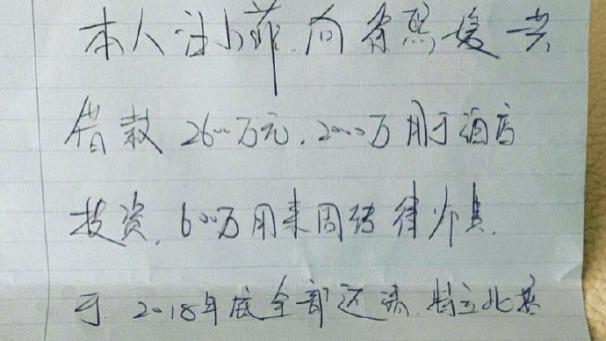 本人 小菲向 熙媛共
借款2600万元,2000万用于酒店
投资,600万用来周转律师费.
于2018年底全部还清.特立此